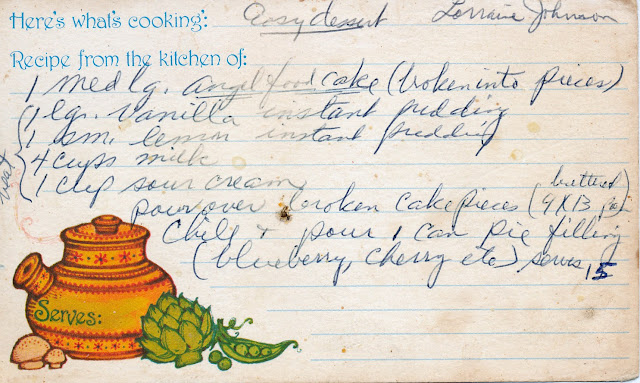 Here's what's cooking: Easy dessert Lorraine Johnson
Recipe from the kitchen of:
1 med lg. angel food cake (broken into pieces)
1 lg. vanilla instant pudding
1 sm. lemon instant pudding
4 cups milk
1 cup sour cream
beat
pour over broken cake pieces (buttered 9 X 13 pan
Chill + pour 1 can pie filling
(blueberry, cherry etc) serves 15
Serves: